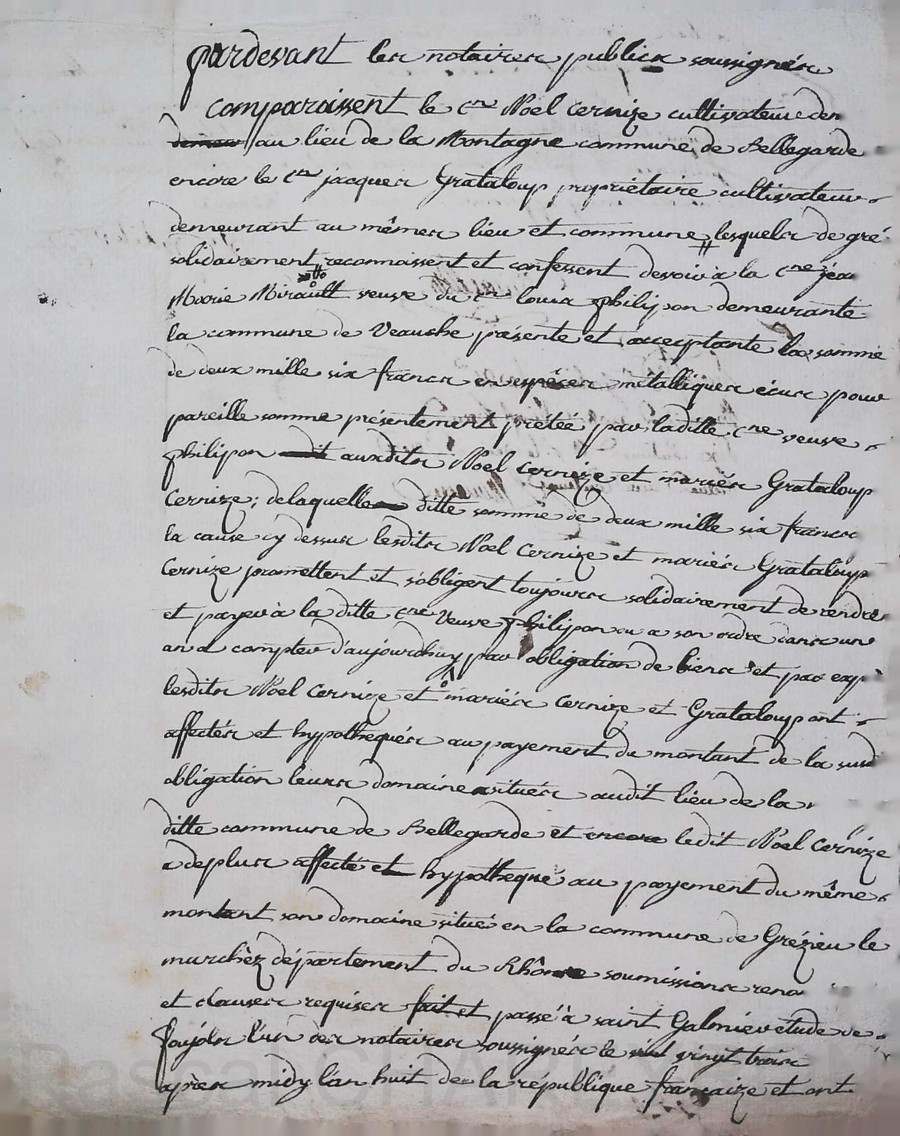 pardevant les notaires publics soussignés
comparaissent le cen Noel Cernize cultivateur dem
au lieu de la Montagne commune de Bellegarde
encore le cen jacques Grataloup propriétaire cultivateur
demeurant au mêmes lieu et commune, lesquels de gré
solidairement reconnaissent et confessent devoir à la cne jéan
Marie Mirault veuve du cen Louis philipon demeurante
la commune de Veauche présente et acceptante la somme
de deux mille six francs en espèces métalliques écus pour
pareille somme présentement pretée par laditte cne veuve
philipon auxdits Noel Cernize et mariés Grataloup
Cernize; delaquelle ditte somme de deux mille six francs
la cause cy dessus lesdits Noel Cernize et mariés Grataloup
Cernize promettent et s'obligent toujours solidairement de rendre
et payer à la ditte cne Veuve philipon ou a son ordre dans un
an a compter d'aujourdhuy par obligation de biens et par exp
lesdits Noel Cernize et mariés Cernize et Grataloup ont
affectés et hypothequés au payement du montant de la susd
obligation leurs domaine situés audit lieu de la
ditte commune de Bellegarde et encore ledit Noel Cernize
a deplus affecté et hypothequé au payement du même
montant son domaine situé en la commune de Grézieu le
marchèz département du Rhône soumissions reno
et clauses requises fait et passé à saint Galmier etude de
l'un des notaires soussignés le vingt trois
après midy l'an huit de la république françaize et ont